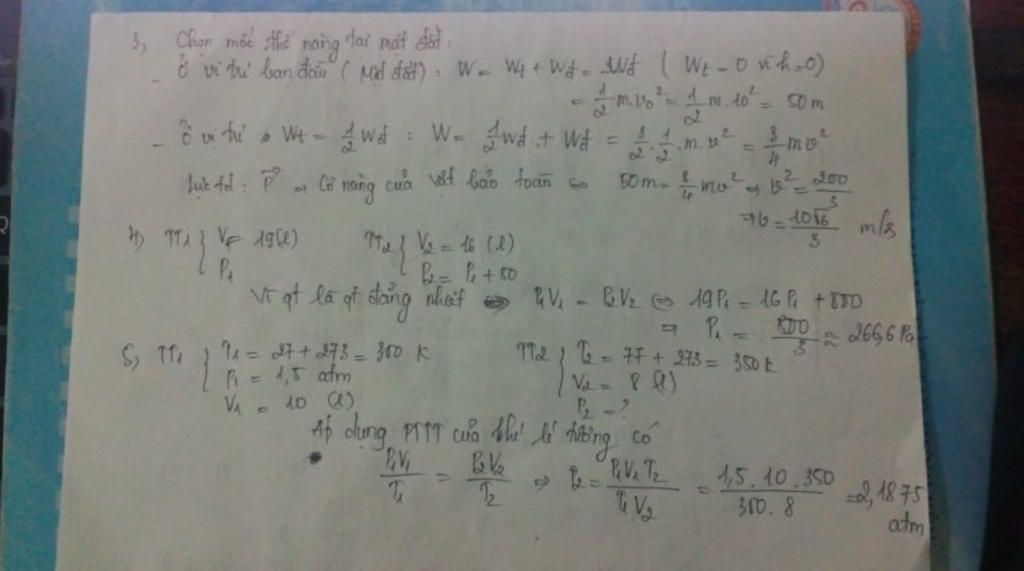 3, Chọn mốc thế năng tại mặt đất:
- Ở vị trí ban đầu (Mặt đất): W = Wt + Wđ = 1Wđ (Wt = 0 vì h=0)
= 1/2 m.v₀² = 1/2 m.10² = 50m
- Ở vị trí Wt = 1/2 Wđ : W = 1/2 Wđ + Wđ = 3/2 . 1/2 . m.v² = 3/4 mv²
lực td: P⃗ ⇒ Cơ năng của vật bảo toàn ⇔ 50m = 3/4 mv² ⇒ v² = 200/3
⇒ v = 10√6/3 m/s
4) TT1 { V1 = 19(l) TT2 { V2 = 16 (l)
P1 P2 = P1 + 50
Vì qt là qt đẳng nhiệt ⇒ P1V1 = P2V2 ⇔ 19P1 = 16P1 + 800
⇒ P1 = 800/3 ≈ 266,6 Pa
5) TT1 { T1 = 27 + 273 = 300 K TT2 { T2 = 77 + 273 = 350 K
P1 = 1,5 atm V2 = 8 (l)
V1 = 10 (l) P2 = ?
Áp dụng PTTT của khí lí tưởng có
P1V1/T1 = P2V2/T2 ⇒ P2 = P1V1T2/T1V2 = 1,5.10.350/300.8 = 2,1875
atm